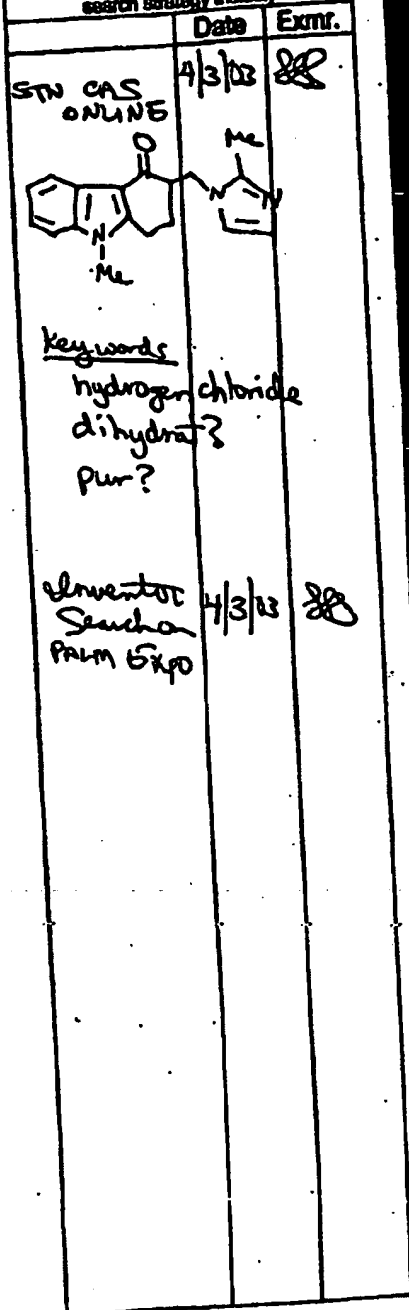 search strategy
Date Exmr.
STN CAS 4/3/03
ONLINE
O
Me
N
N
N
Me
Keywords
hydrogen chloride
dihydrat?
pur?
Inventor 4/3/03
Search on
PALM Expo